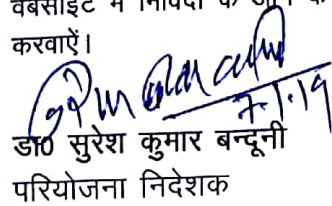 वेबसाइट में निविदा के
करवाऐं।
7.1.19
डा0 सुरेश कुमार बन्दूनी
परियोजना निदेशक